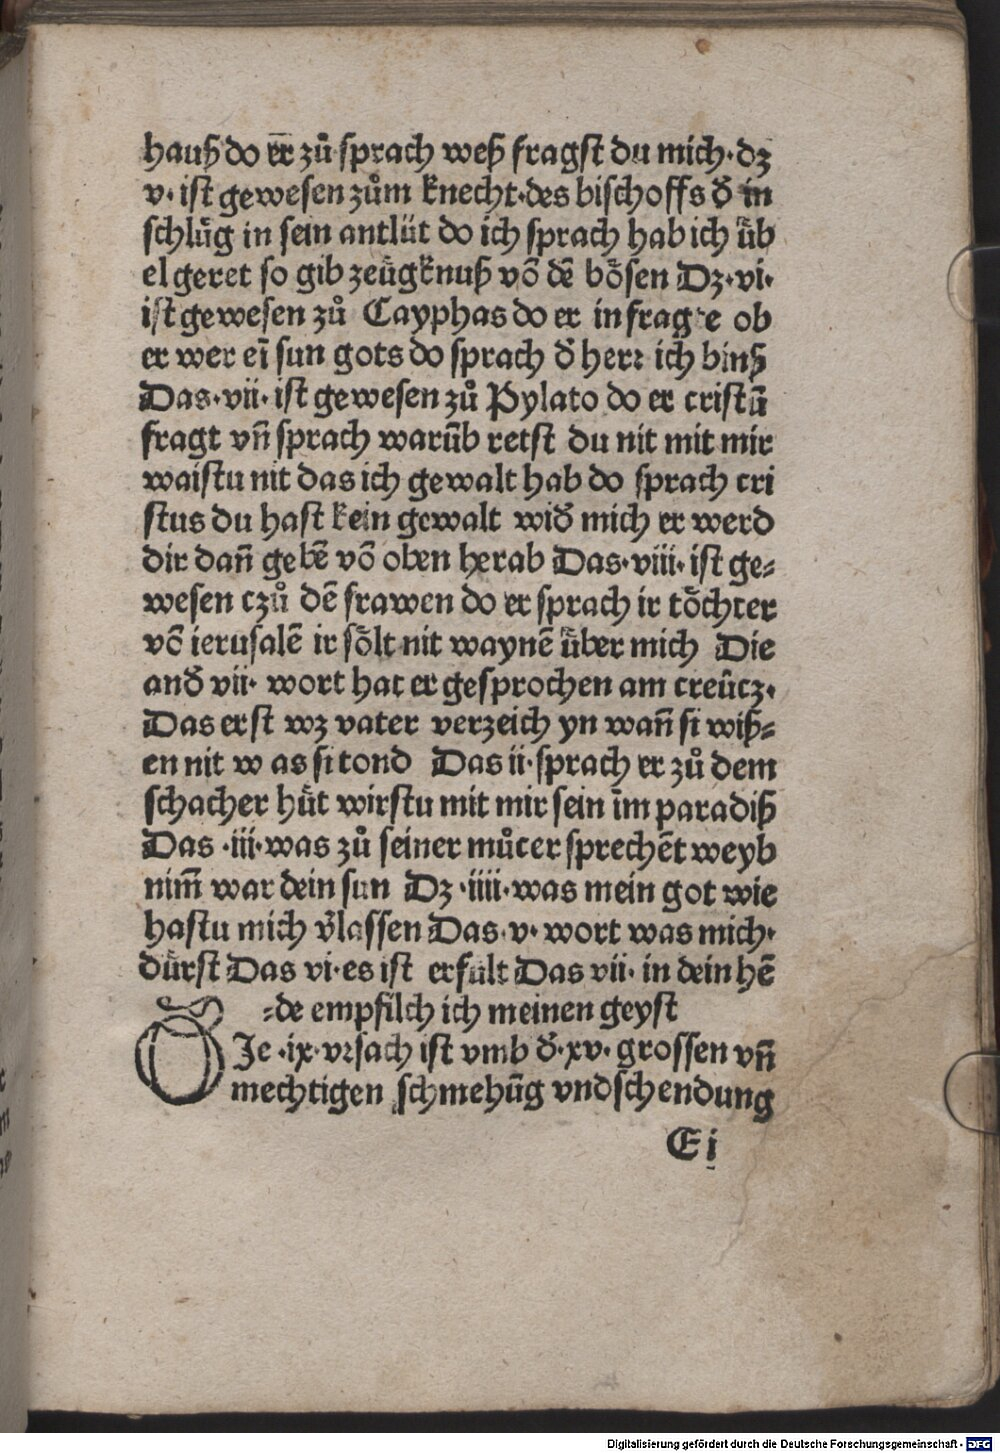 hauß do er̄ zů sprach weß fragst du mich· dz
v· ist gewesen zům knecht·des bischoffs d̄ in
schlůg in sein antlüt do ich sprach hab ich üb
el geret so gib zeügknuß vō dē bösen Dz·vi·
ist gewesen zů Cayphas do er in fragte ob
er wer eī sun gots do sprach d̄ herr ich binß
Das·vii· ist gewesen zů Pylato do er cristū
fragt vn̄ sprach warūb retst du nit mit mir
waistu nit das ich gewalt hab do sprach cri
stus du hast kein gewalt wid̄ mich er werd
dir dan̄ gebē vō oben herab Das·viii· ist ge⸗
wesen czů dē frawen do er sprach ir töchter
vō ierusalē ir sölt nit waynē über mich Die
and̄ vii· wort hat er gesprochen am creücz·
Das erst wz vater verzeich yn wan̄ si wiß⸗
en nit w as si tond Das ii·sprach er zů dem
schacher hüt wirstu mit mir sein īm paradiß
Das ·iii·was zů seiner můter sprechēt weyb
nim̄ war dein sun Dz ·iiii·was mein got wie
hastu mich v̄lassen Das·v· wort was mich·
dürst Das vi·es ist erfült Das vii· in dein hē
⸗de empfilch ich meinen geyst
DJe ·ix·vrsach ist vmb d̄·xv· grossen vn̄
mechtigen schmehūg vndschendung
Ei
Digitalisierung gefördert durch die Deutsche Forschungsgemeinschaft - DFG